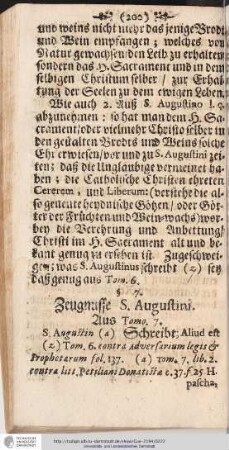 (200)
und weins nicht mehr das jenige Brodt
und Wein empfangen; welches von
Natur gewachsen/ den Leib zu erhalten:
sondern das H. Sacrament und in dem-
selbigen Christum selber / zur Erhal-
tung der Seelen zu dem ewigen Leben.
Wie auch 2. Auß S. Augustino l. 9.
abzunehmen: so hat man dem H. Sa-
crament/ oder vielmehr Christo selber in
den gestalten Brodts und Weins solche
Ehr erwiesen/ vor und zu S. Augustini zei-
ten: daß die Ungläubige vermeinet ha-
ben: die Catholische Christen ehreten
Cererem, und Liberum: (verstehe die al-
so genente heydnische Götzen/ oder Göt-
ter der Früchten und Wein-wachs) wor-
bey die Verehrung und Anbettung
Christi im H. Sacrament alt und be-
kant genug zu ersehen ist. Zugeschwei-
gen; was S. Augustinus schreibt (z) sey
daß genug aus Tom. 6.
7.
Zeugnisse S. Augustini.
Aus Tomo. 7.
S. Augustin (a) Schreibt; Aliud est
(z) Tom. 6. contra adversarium legis &
Prophetarum fol. 137. (a) tom. 7. lib. 2.
contra litt. Petiliani Donatistæ c. 37. f. 25 H
pascha,